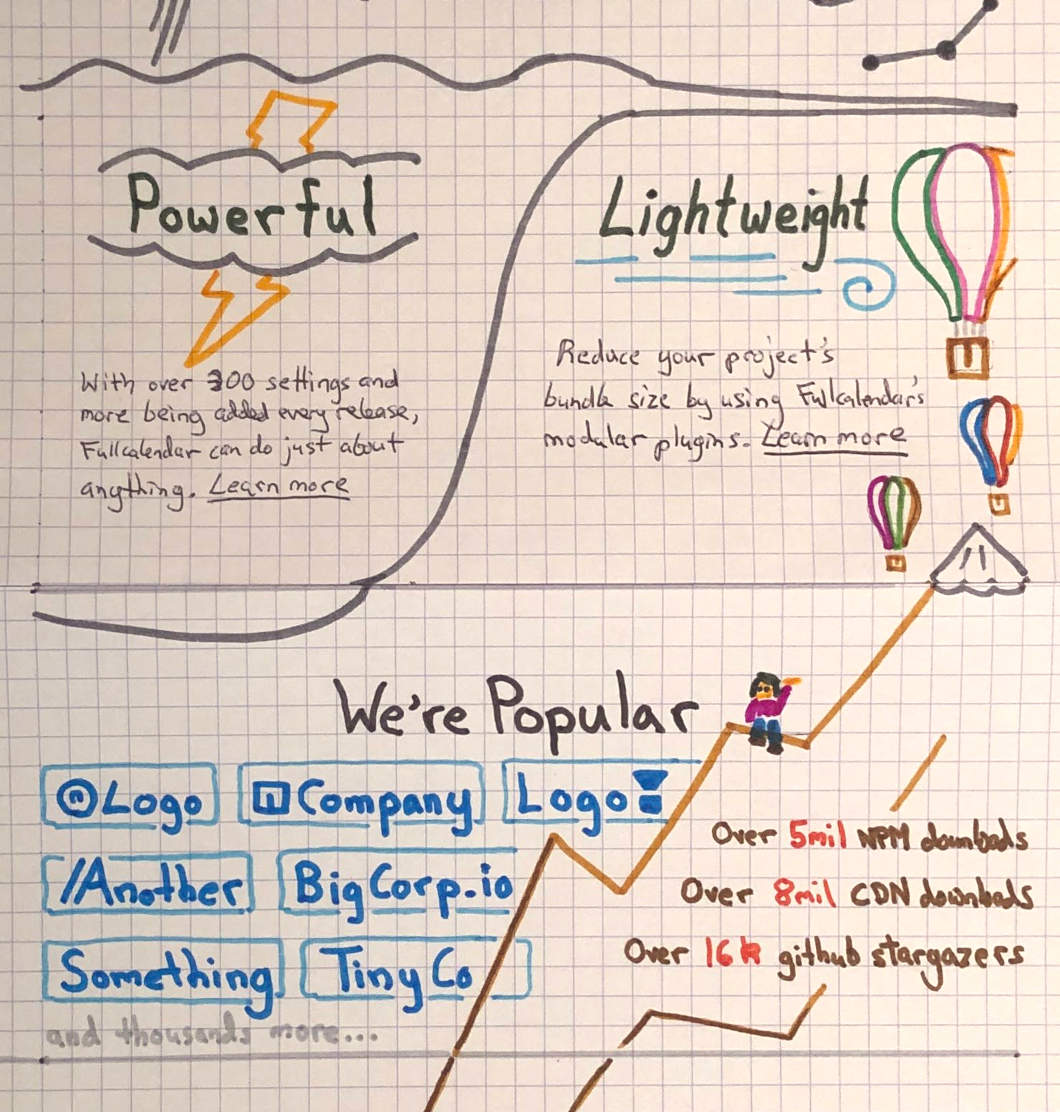 Powerful
With over 300 settings and
more being added every release,
Fullcalendar can do just about
anything. Learn more
Lightweight
Reduce your project's
bundle size by using Fullcalendar's
modular plugins. Learn more
We're Popular
Logo
Company
Logo
/Another
BigCorp.io
Something
TinyCo
and thousands more...
Over 5mil NPM downloads
Over 8mil CDN downloads
Over 16k github stargazers